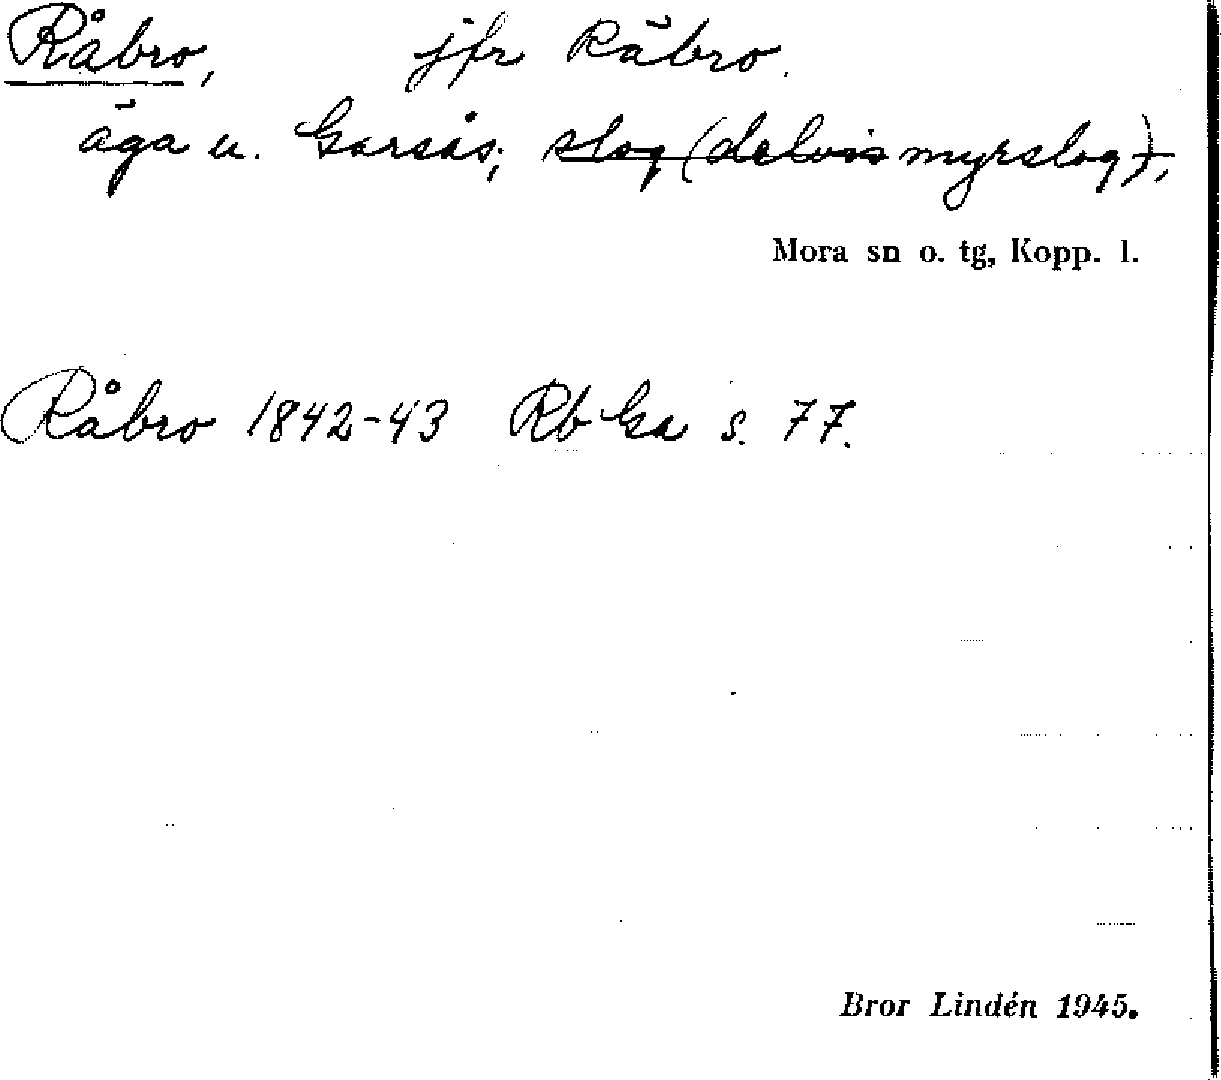 Råbro, jfr Räbro.
äga u. Garsås; slog (delvis myrslog),
Mora sn o. tg, Kopp. l.
Råbro 1842-43 Rb Ga s. 77.
Bror Lindén 1945.